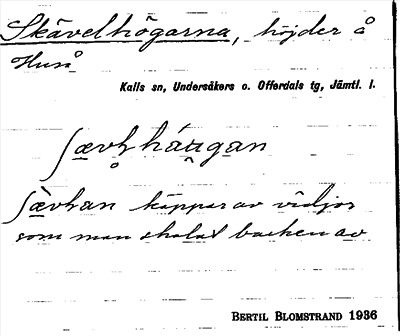 Skävelhögarna, höjder å
Huså
Kalls sn, Undersåkers o. Offerdals tg, Jämtl. l.
käppar av vidjor
som man skalat barken av
BERTIL BLOMSTRAND 1936